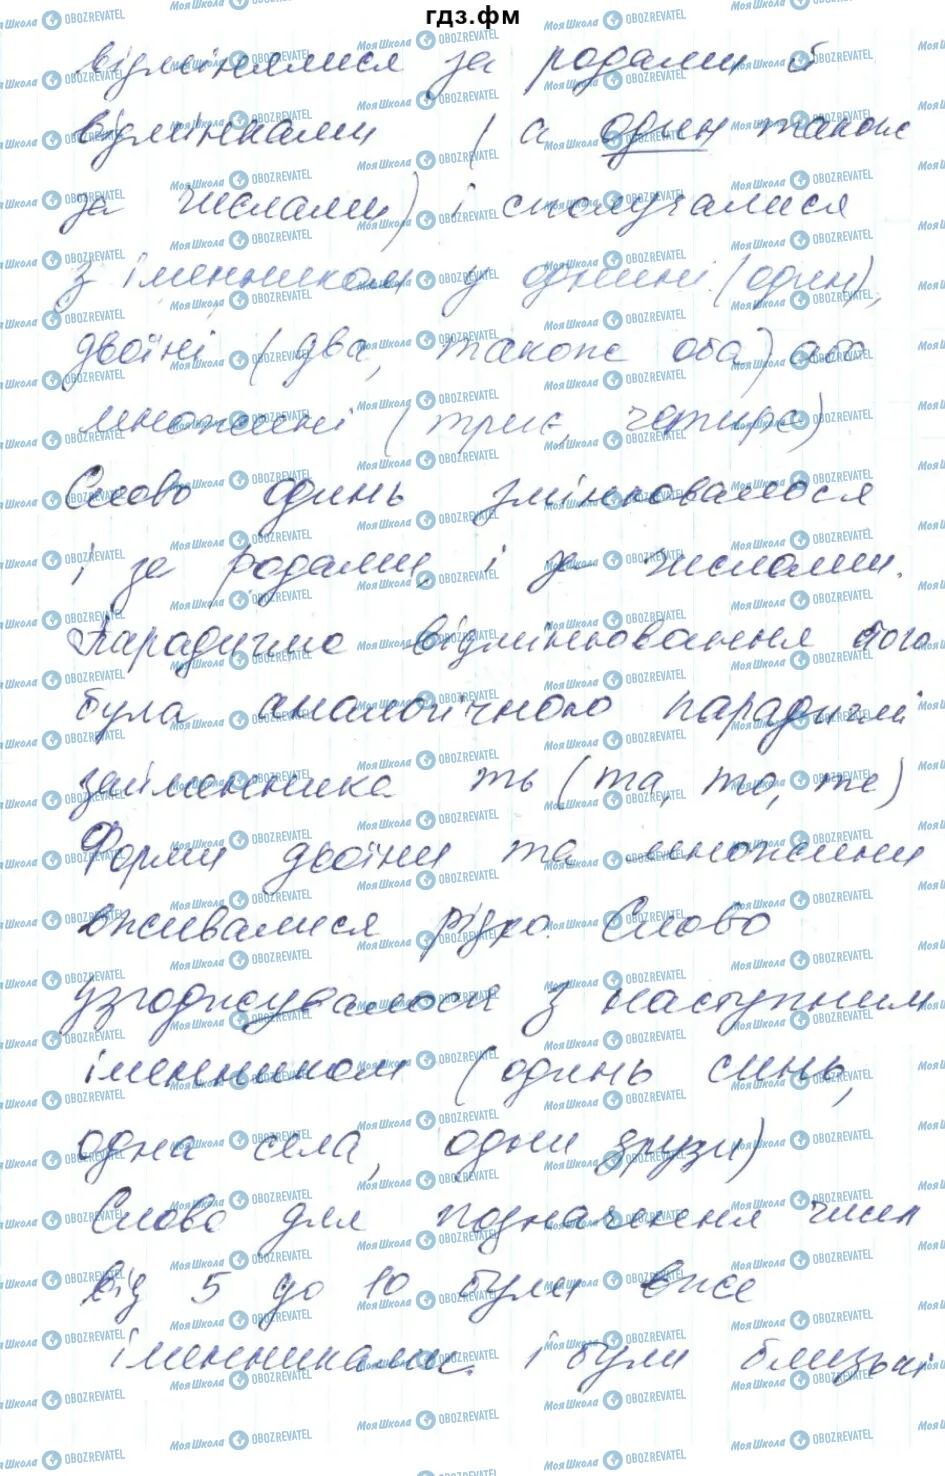 гдз.фм
відмінялися за родами й
відмінками (а один також
за числами) і сполучалися
з іменником у однині (один),
двоїні (два, також оба) або
множині (триє, чотири)
Слово одинь змінювалося
і за родами, і за числами.
Парадигма відмінювання його
була аналогічною парадигмі
займенника ть (та, то, те)
Форми двоїни та множини
вживалися рідко. Слово
узгоджувалося з наступним
іменником (одинь синь,
одна села, одни друзи)
Слова для позначення чисел
від 5 до 10 були вже
іменниками і були близькі